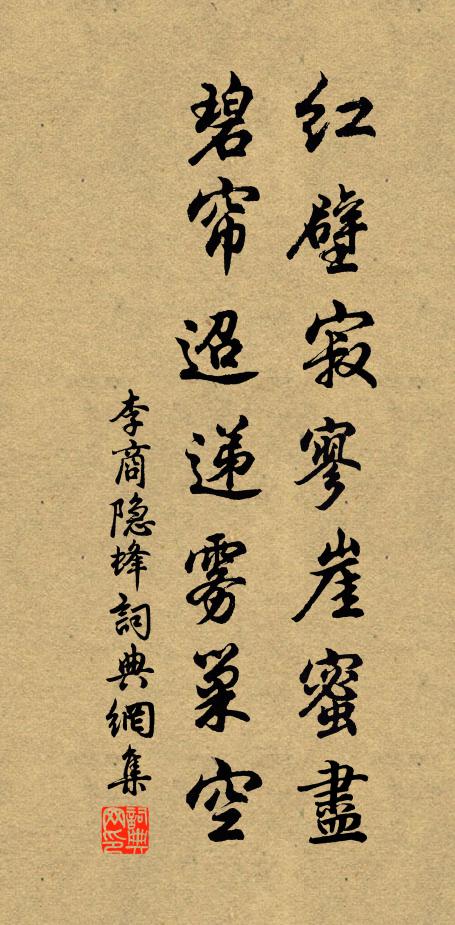 红壁寂寥崖蜜盡
碧帘迢递雾巢空
李商隐蜂詞典網集
詞典
网印